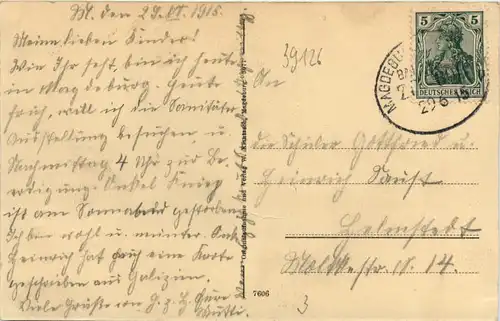 M. den 29.VI. 1915.
Meine lieben Kinder!
Wie Ihr seht, bin ich heute
in Magdeburg. Heute
früh, will ich die Sanitäts
Ausstellung besuchen, u.
Nachmittag 4 Uhr zur Be-
erdigung. Onkel
ist am Sonnabend gestorben.
Ich bin wohl u. munter. Onkel
Heinrich hat auch eine Karte
geschrieben aus Galizien.
Viele Grüße von Eure
Mutti.
39126
5 5
DEUTSCHES REICH
MAGDEBURG
29.6.15
An
die Schüler Gottfried u.
Heinrich Faust
Helmstedt
Moltkestr. 14.
7606
3